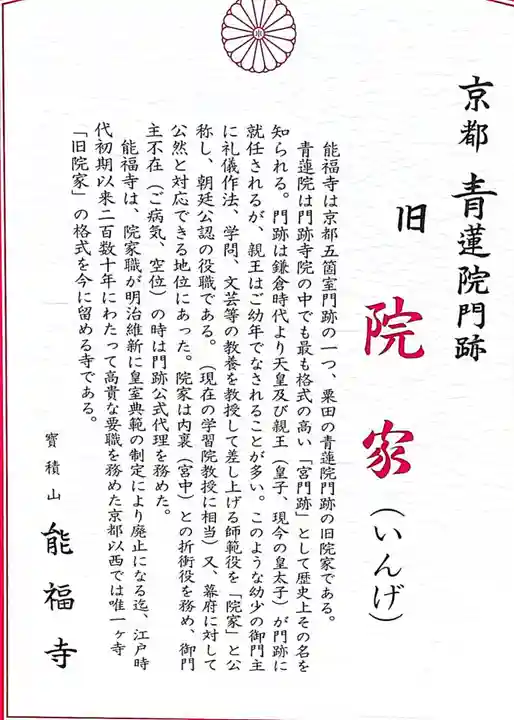 京都 青蓮院門跡
旧
院家(いんげ)
能福寺は京都五箇室門跡の一つ、粟田の青蓮院門跡の旧院家である。
青蓮院は門跡寺院の中でも最も格式の高い「宮門跡」として歴史上その名を
知られる。門跡は鎌倉時代より天皇及び親王(皇子、現今の皇太子)が門跡に
就任されるが、親王はご幼年でなされることが多い。このような幼少の御門主
に礼儀作法、学問、文芸等の教養を教授して差し上げる師範役を「院家」と公
称し、朝廷公認の役職である。(現在の学習院教授に相当)又、幕府に対して
公然と対応できる地位にあった。院家は内裏(宮中)との折衝役を務め、御門
主不在(ご病気、空位)の時は門跡公式代理を務めた。
能福寺は、院家職が明治維新に皇室典範の制定により廃止になる迄、江戸時
代初期以来二百数十年にわたって高貴な要職を務めた京都以西では唯一ヶ寺
「旧院家」の格式を今に留める寺である。
寳積山 能福寺